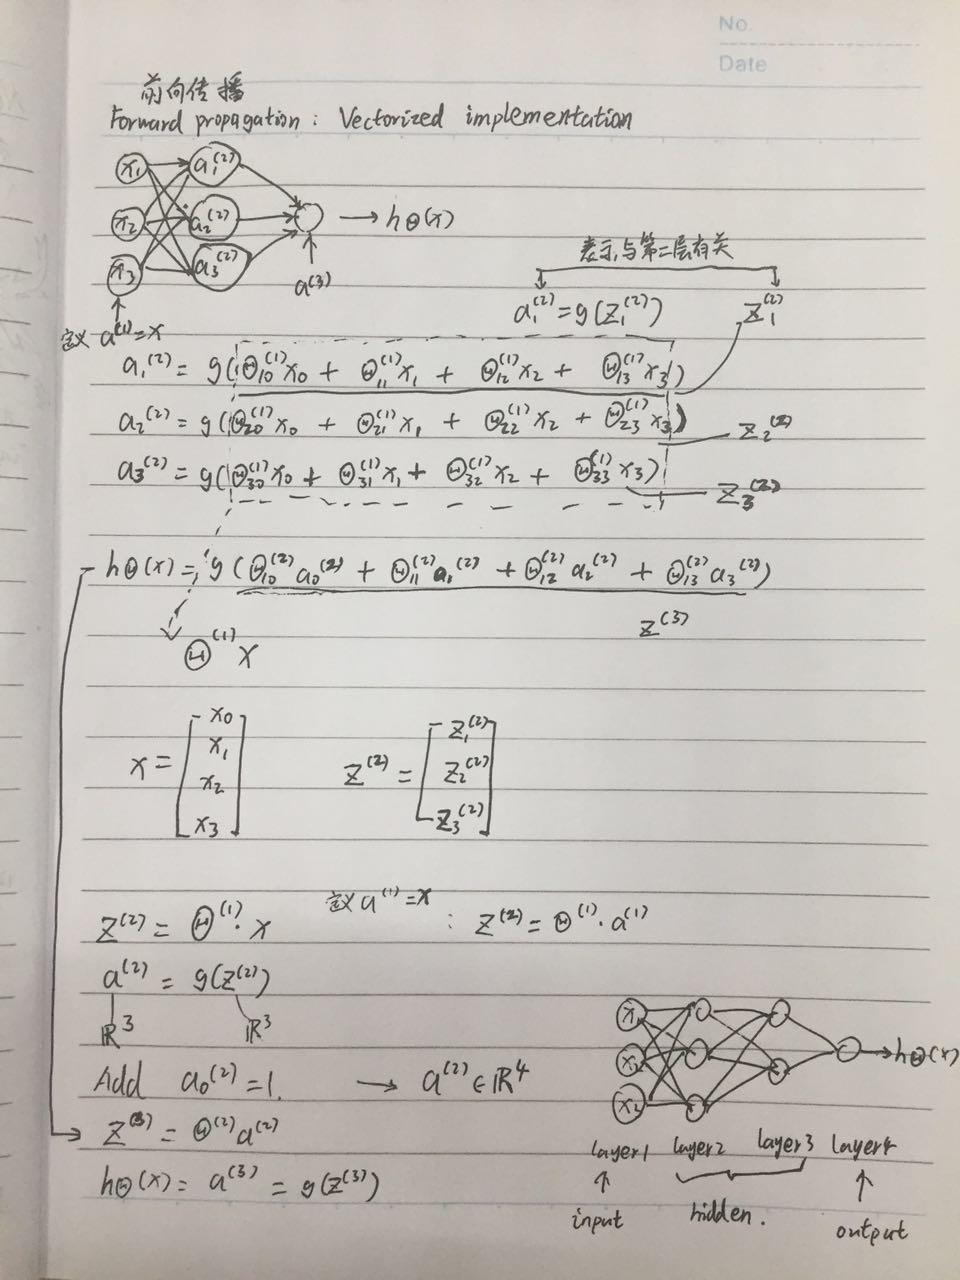 No.
Date
前向传播
Forward propagation: Vectorized implementation
x₁ a₁⁽²⁾
x₂ a₂⁽²⁾ → hΘ(x)
x₃ a₃⁽²⁾ a⁽³⁾
表示与第二层有关
定义 a⁽¹⁾=x a₁⁽²⁾=g(z₁⁽²⁾) z₁⁽²⁾
a₁⁽²⁾ = g(Θ₁₀⁽¹⁾x₀ + Θ₁₁⁽¹⁾x₁ + Θ₁₂⁽¹⁾x₂ + Θ₁₃⁽¹⁾x₃)
a₂⁽²⁾ = g(Θ₂₀⁽¹⁾x₀ + Θ₂₁⁽¹⁾x₁ + Θ₂₂⁽¹⁾x₂ + Θ₂₃⁽¹⁾x₃) z₂⁽²⁾
a₃⁽²⁾ = g(Θ₃₀⁽¹⁾x₀ + Θ₃₁⁽¹⁾x₁ + Θ₃₂⁽¹⁾x₂ + Θ₃₃⁽¹⁾x₃) z₃⁽²⁾
hΘ(x) = g(Θ₁₀⁽²⁾a₀⁽²⁾ + Θ₁₁⁽²⁾a₁⁽²⁾ + Θ₁₂⁽²⁾a₂⁽²⁾ + Θ₁₃⁽²⁾a₃⁽²⁾)
z⁽³⁾
Θ⁽¹⁾x
x = [x₀ x₁ x₂ x₃] z⁽²⁾ = [z₁⁽²⁾ z₂⁽²⁾ z₃⁽²⁾]
定义 a⁽¹⁾=x
z⁽²⁾ = Θ⁽¹⁾·x : z⁽²⁾ = Θ⁽¹⁾·a⁽¹⁾
a⁽²⁾ = g(z⁽²⁾)
ℝ³ ℝ³
Add a₀⁽²⁾=1. → a⁽²⁾∈ℝ⁴
z⁽³⁾ = Θ⁽²⁾a⁽²⁾
hΘ(x) = a⁽³⁾ = g(z⁽³⁾)
→ hΘ(x)
x₂
layer1 layer2 layer3 layer4
input hidden. output